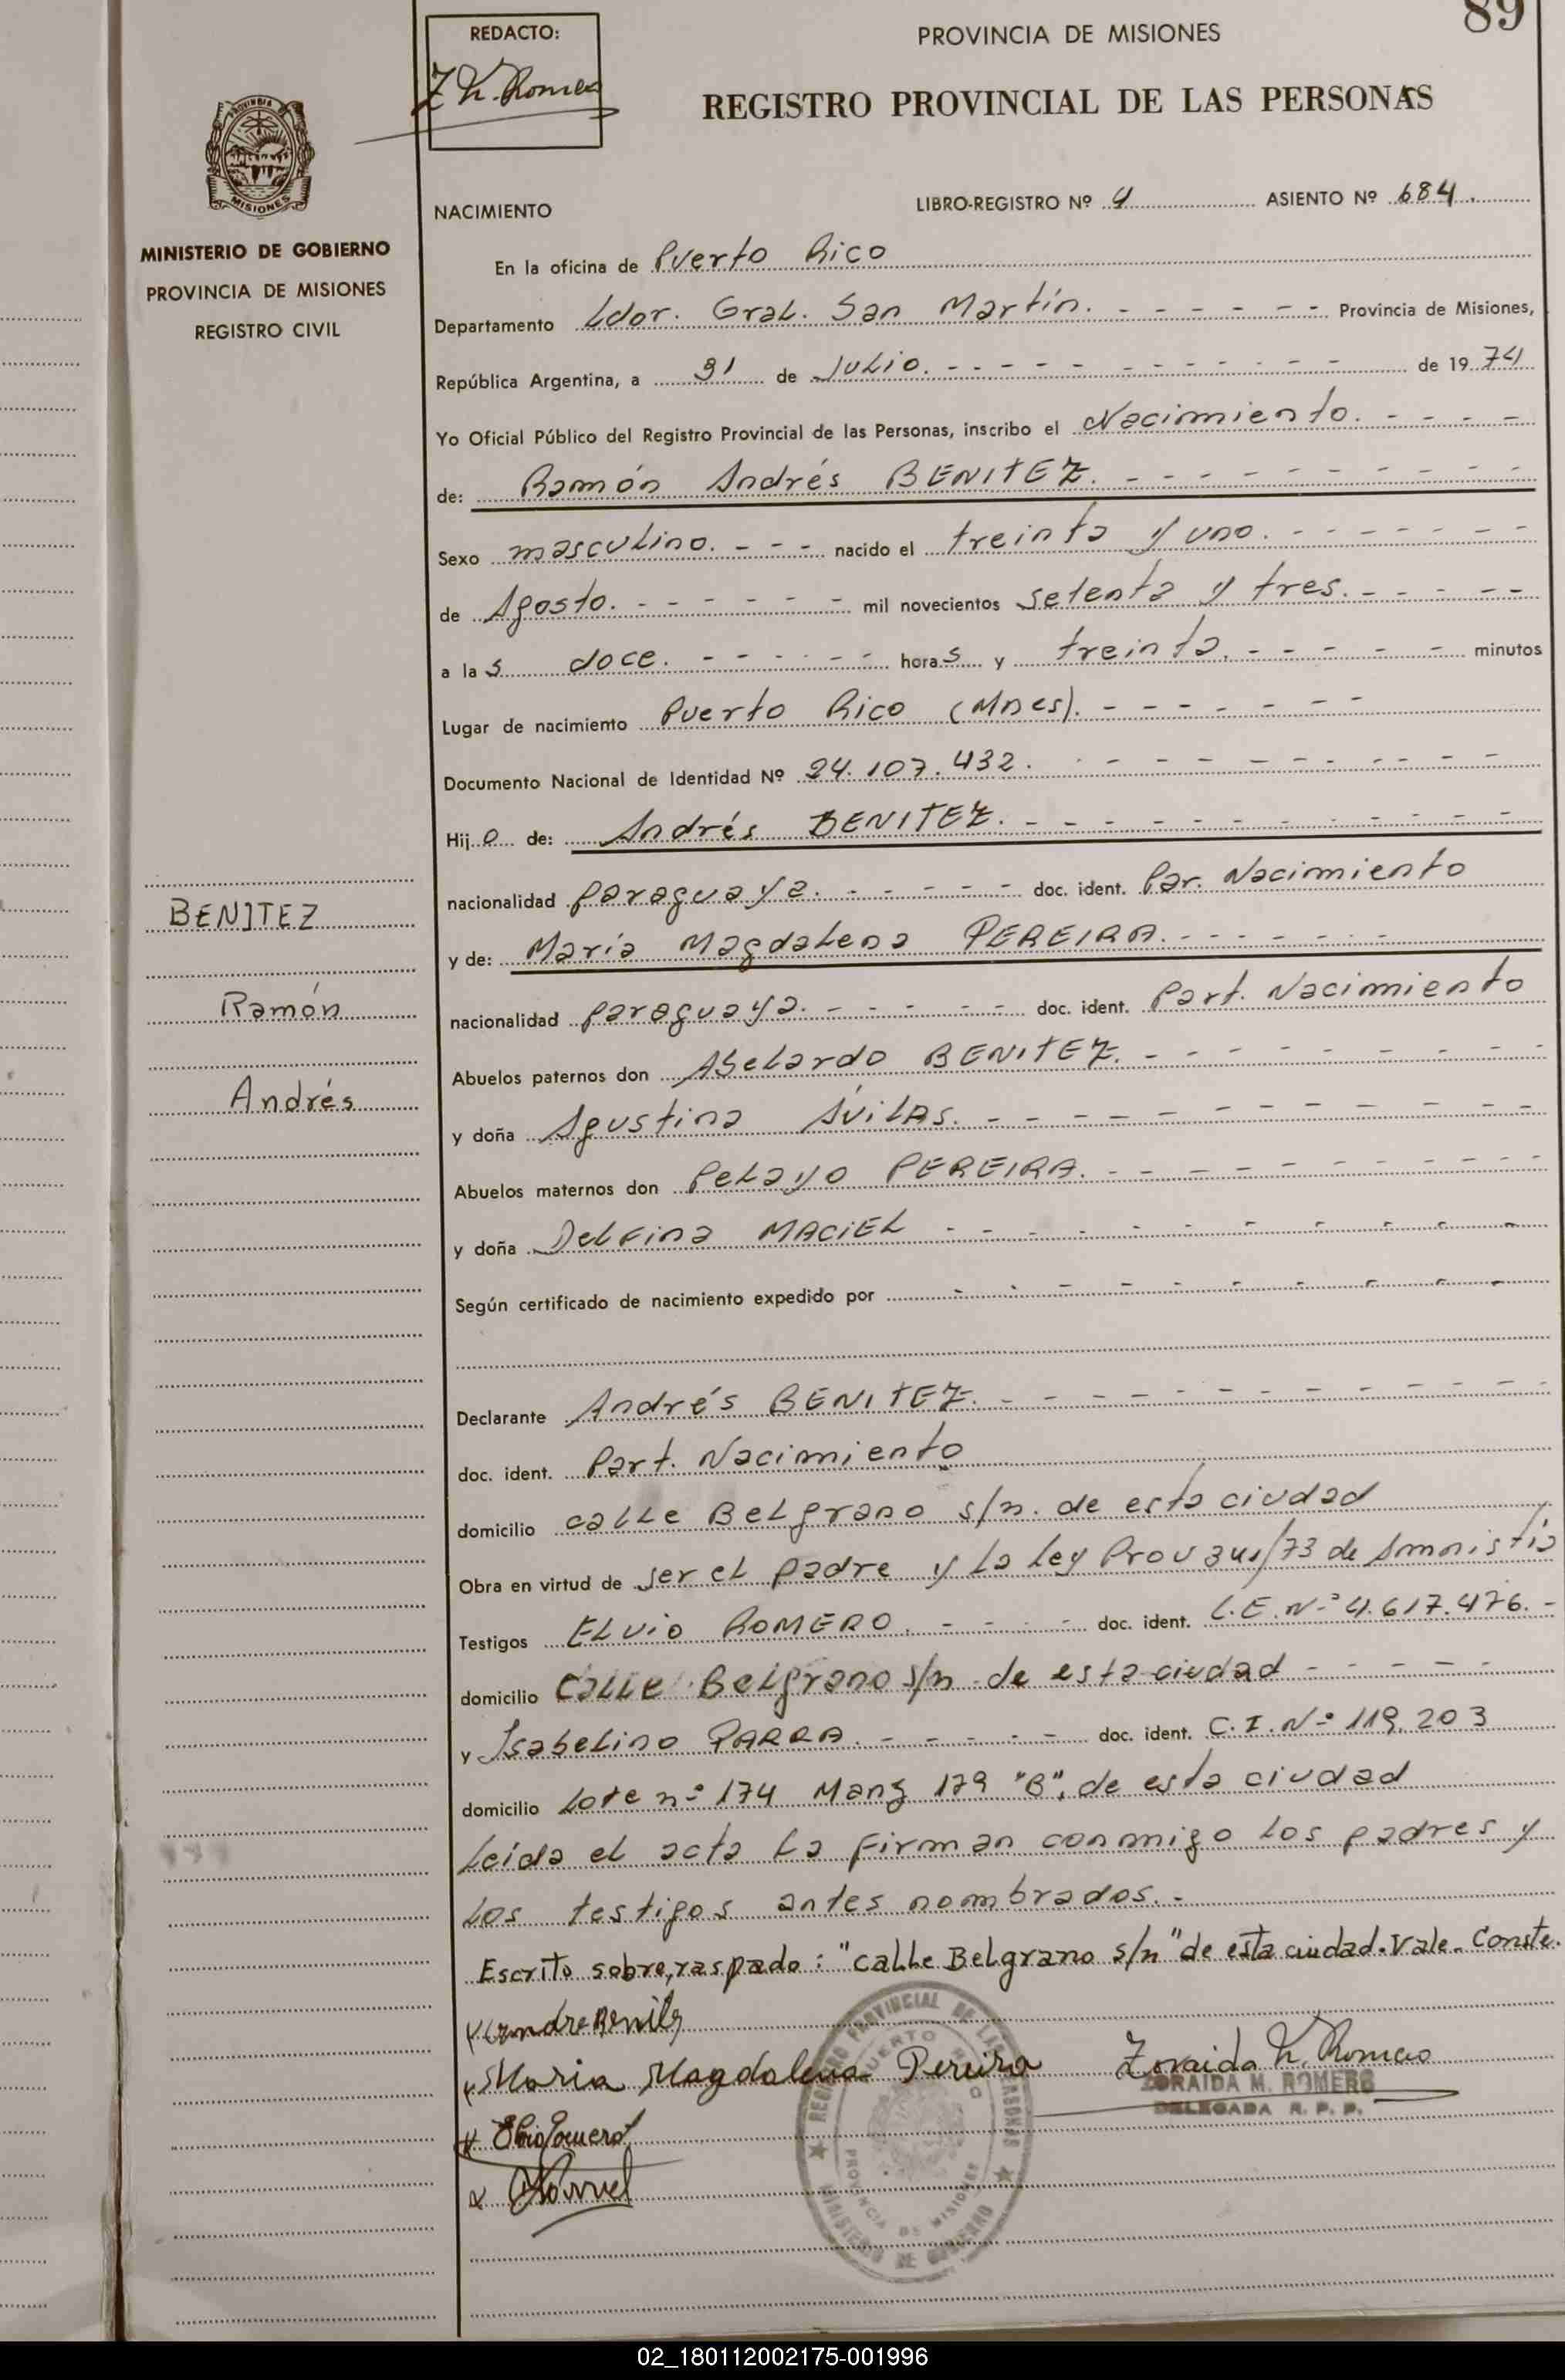 89
REDACTO:
Z M. Romero
PROVINCIA DE MISIONES
REGISTRO PROVINCIAL DE LAS PERSONAS
MISIONES
MINISTERIO DE GOBIERNO
PROVINCIA DE MISIONES
REGISTRO CIVIL
NACIMIENTO
LIBRO-REGISTRO Nº 4 ASIENTO Nº 684.
En la oficina de Puerto Rico
Departamento Ldor. Gral. San Martín. - - - - - - Provincia de Misiones,
República Argentina, a 31 de Julio. - - - - - - - - - - de 19 74
Yo Oficial Público del Registro Provincial de las Personas, inscribo el Nacimiento. - - - -
de: Ramón Andrés BENITEZ. - - - - - - - - -
Sexo masculino. - - - nacido el treinta y uno. - - - - - -
de Agosto. - - - - - - mil novecientos setenta y tres. - - - - -
a las doce. - - - - - - horas y treinta. - - - - - minutos
Lugar de nacimiento Puerto Rico (Mnes). - - - - - - -
Documento Nacional de Identidad Nº 24.107.432. - - - - - - - - - -
Hijo de: Andrés BENITEZ. - - - - - - - - - - -
nacionalidad paraguaya. - - - - - doc. ident. Par. Nacimiento
y de: María Magdalena PEREIRA. - - - - - - -
nacionalidad paraguaya. - - - - - - doc. ident. Part. Nacimiento
Abuelos paternos don Abelardo BENITEZ. - - - - - - - -
y doña Agustina AviLAS. - - - - - - - - - - -
Abuelos maternos don Pelayo PEREIRA. - - - - - - - - - -
y doña Delfina MACIEL - - - - - - - - - -
Según certificado de nacimiento expedido por - - - - - - - - - -
BENITEZ
Ramón
Andrés
Declarante Andrés BENITEZ. - - - - - - - - - - - -
doc. ident. Part. Nacimiento
domicilio calle Belgrano s/n. de esta ciudad
Obra en virtud de ser el padre y la Ley Prov 341/73 de Amnistía
Testigos ELvio ROMERO. - - - - doc. ident. L.E. Nº 4.617.476. -
domicilio Calle Belgrano s/n de esta ciudad - - - - -
y Isabelino PARRA. - - - - - doc. ident. C.I. Nº 119.203
domicilio Lote nº 174 Manz 179 "B", de esta ciudad
Leída el acta la firman conmigo los padres y
los testigos antes nombrados. -
Escrito sobre raspado: "calle Belgrano s/n" de esta ciudad. Vale. Conste.
Maria Magdalena Pereira
Zoraida M. Romero
ZORAIDA M. ROMERO
DELEGADA R. P. P.
REGISTRO PROVINCIAL DE LAS PERSONAS
PUERTO RICO
PROVINCIA DE MISIONES
MINISTERIO DE GOBIERNO
02_180112002175-001996